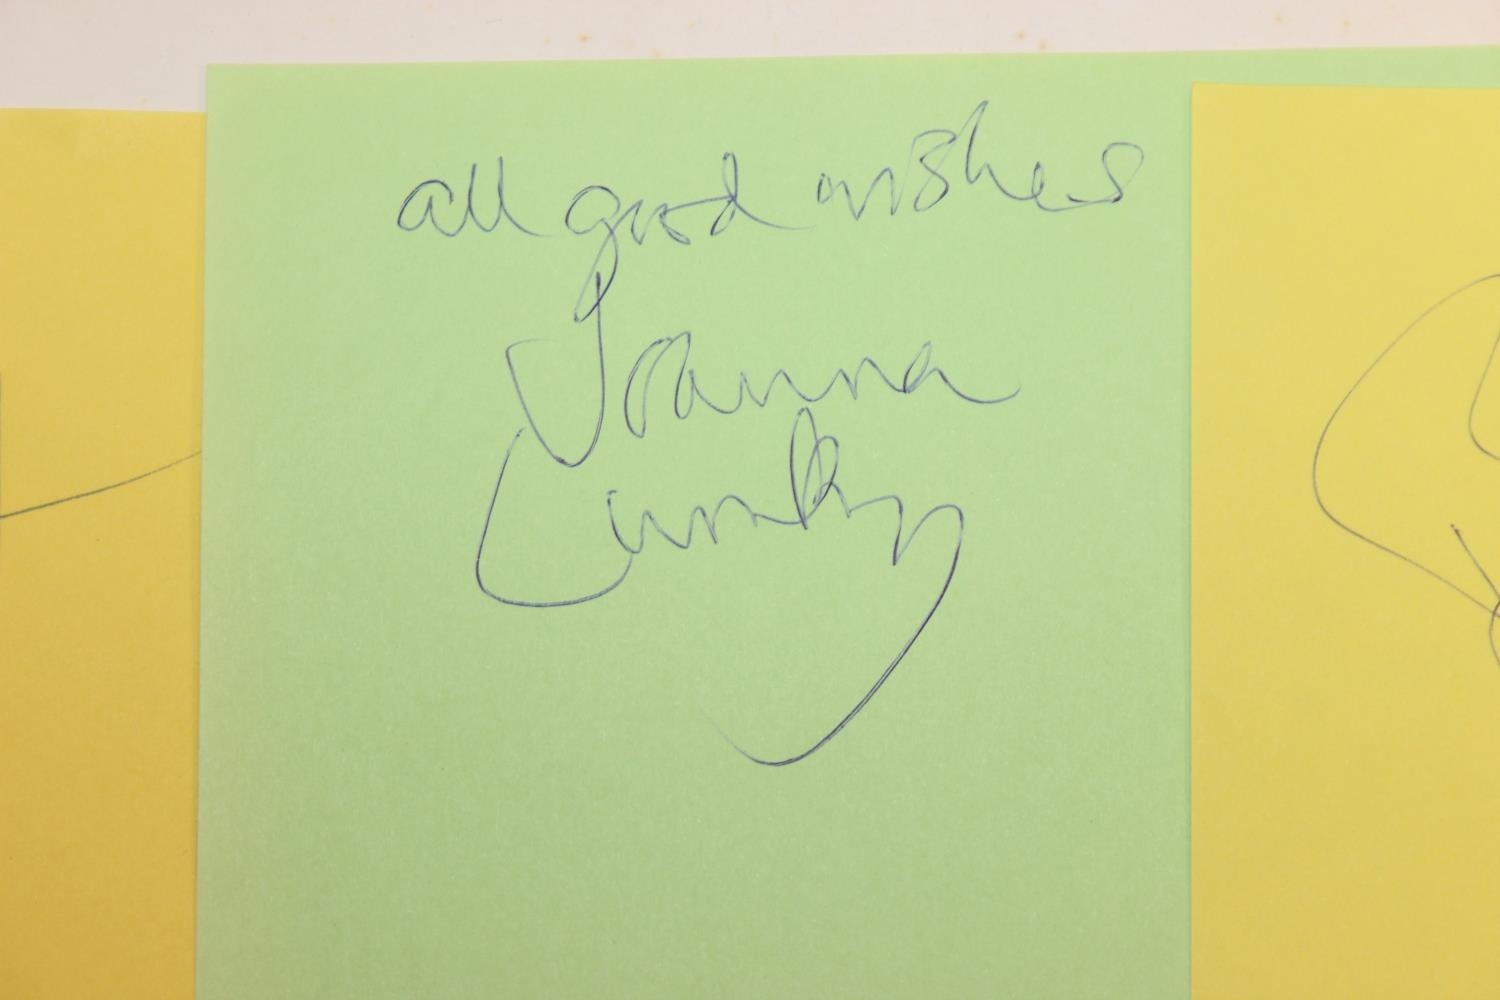 all good wishes
Joanna
Lumley